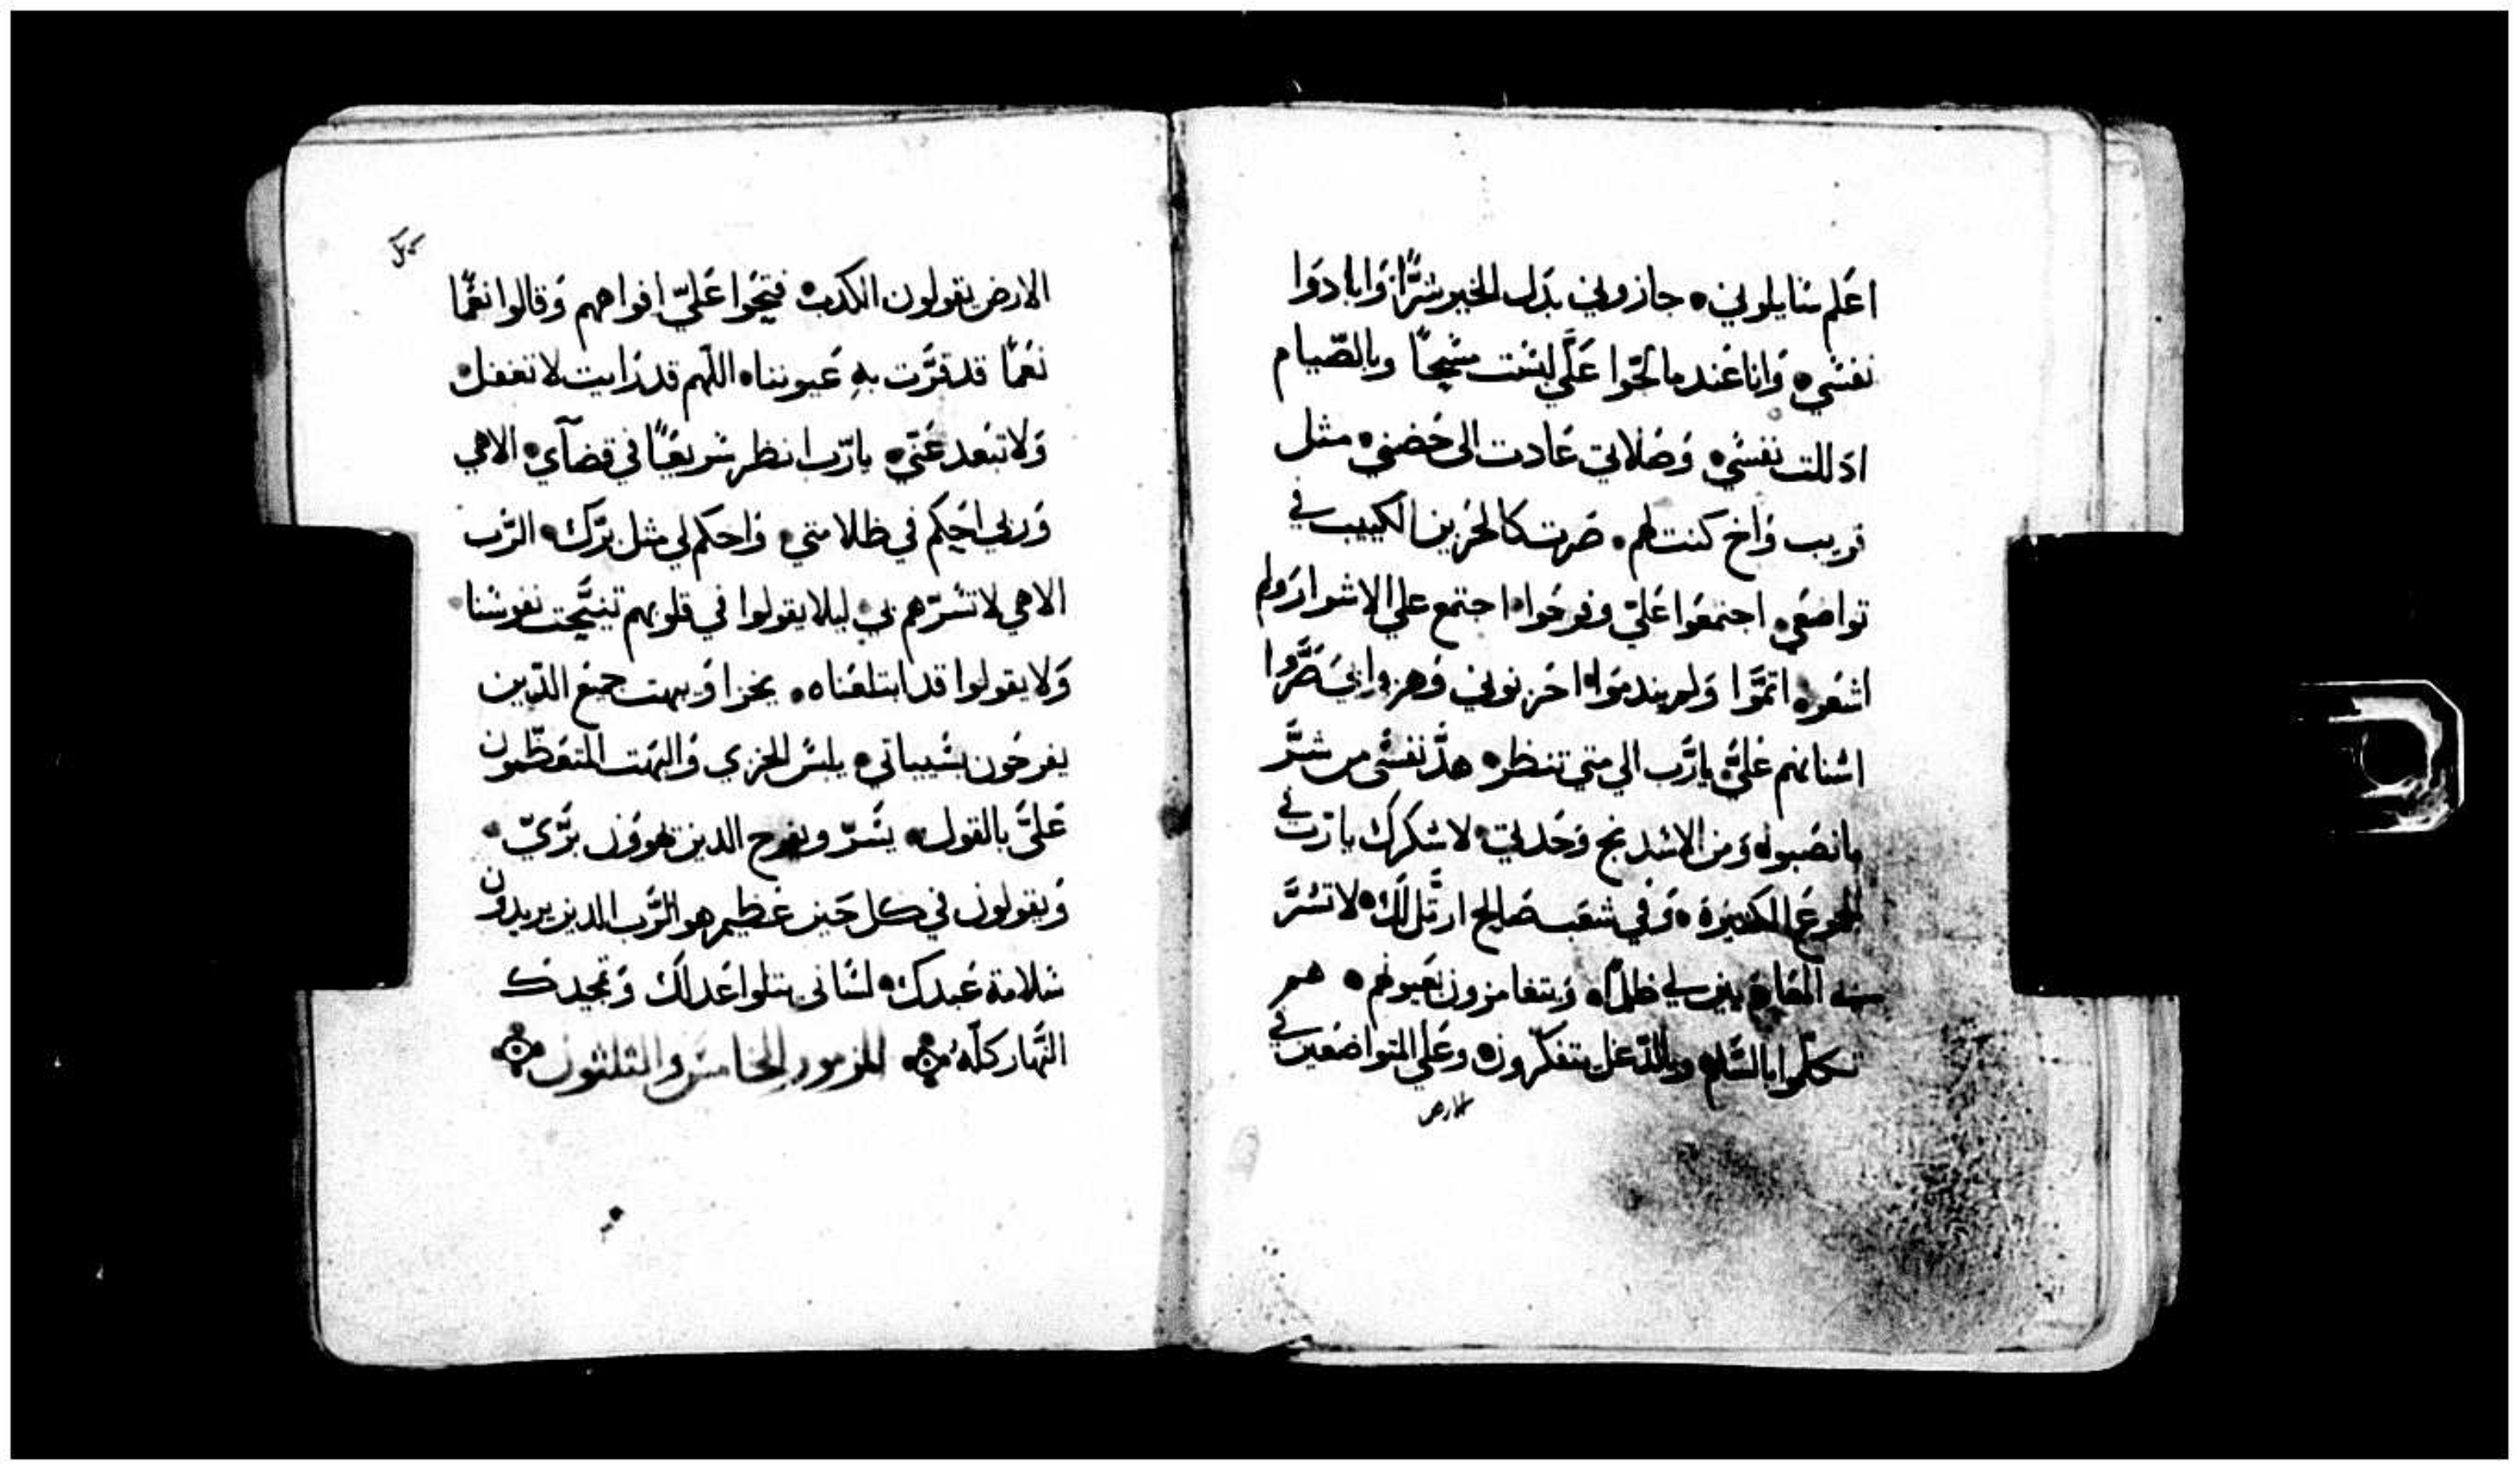 اعلم سايلوني جازوني بدل الخير شرًّا وابادوا
نفسي وانا عندما لحّوا عليَّ لبست مسحًا وبالصّيام
اذللت نفسي وصلاتي عادت الى حضني مثل
قريب واخ كنت لهم صرت كالحزين الكييب في
تواضعي اجتمعوا عليّ وفرحوا اجتمع علي الاشرار ولم
اشعر اتمّوا ولم يندموا احزنوني وهزوا بي صَرُّوا
اسنانهم عليَّ يا ربّ الي متي تنظر هذّ نفسي من شرّ
ما نصبوا ومن الاسد نج وحدتي لاشكرك يا ربّ في
الجموع الكبيرة وفي شعب صالح ارتّل لك لا تسرَّ
بي ظلمًا ويتغامزون بعيونهم هم
تكلّموا بالسّلام وبالدّغل يتفكّرون وعلي المتواضعين في
الارض
الارض يقولون الكذب فتحوا عليّ افواههم وقالوا نعمًّا
نعمًّا قد قرَّت به عيوننا اللّهم قد رايت لا تغفل
ولا تبعد عنّي يا ربّ انظر سريعًا في قضآي الاهي
وربي احكم في ظلامتي واحكم لي مثل برّك الرّب
الاهي لا تسرّهم بي ليلا يقولوا في قلوبهم تنيَّحت نفوسنا
ولا يقولوا قد ابتلعناه يخزا ويبهت جميع الذّين
يفرحون بسيياتي يلبس الخزي والبهت المتعظّمون
عليَّ بالقول يسرّ ويفرح الذين يهوون برّيّ
ويقولون في كل حين عظيم هو الرَّب الذين يريدون
سلامة عبدك لساني يتلوا عدلك وتمجيدك
النّهار كلّه المزمور الخامس والثلثون